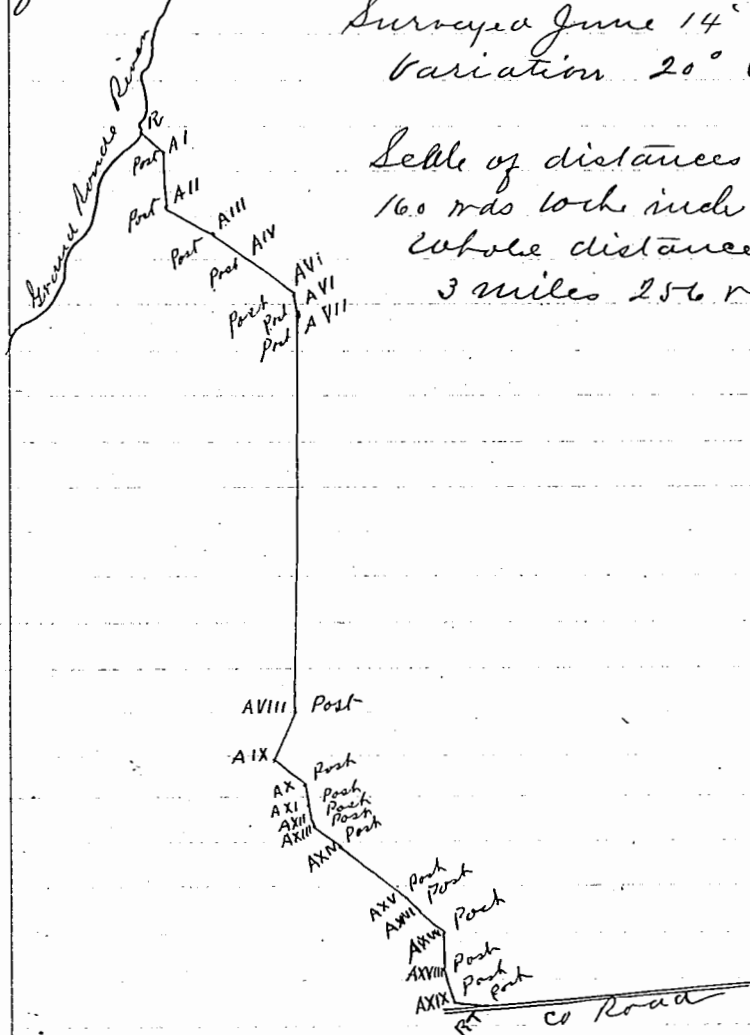 Surveyed June 14
Variation 20°
Scale of distances
160 rods to the inch
Whole distance
3 miles 256 r
Ground Ronde River
R
Post AI
Post AII
Post AIII
Post AIV
AVi
Post AVI
Post A VII
Post
AVIII Post
AIX
Post
AX Post
AXI Post
AXII Post
AXIII Post
AXIV
Post
AXV Post
AXVI
Post
AXVII
Post
AXVIII Post
AXIX Post
RT
Co Road